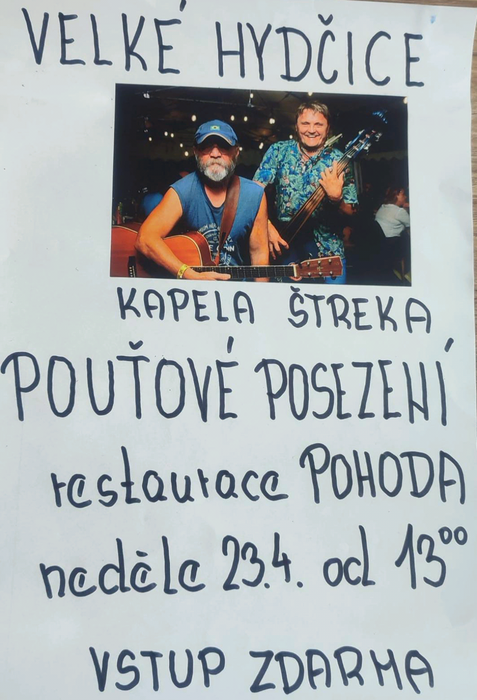 VELKÉ HYDČICE
KAPELA ŠTREKA
POUŤOVÉ POSEZENÍ
restaurace POHODA
neděle 23.4. od 13⁰⁰
VSTUP ZDARMA